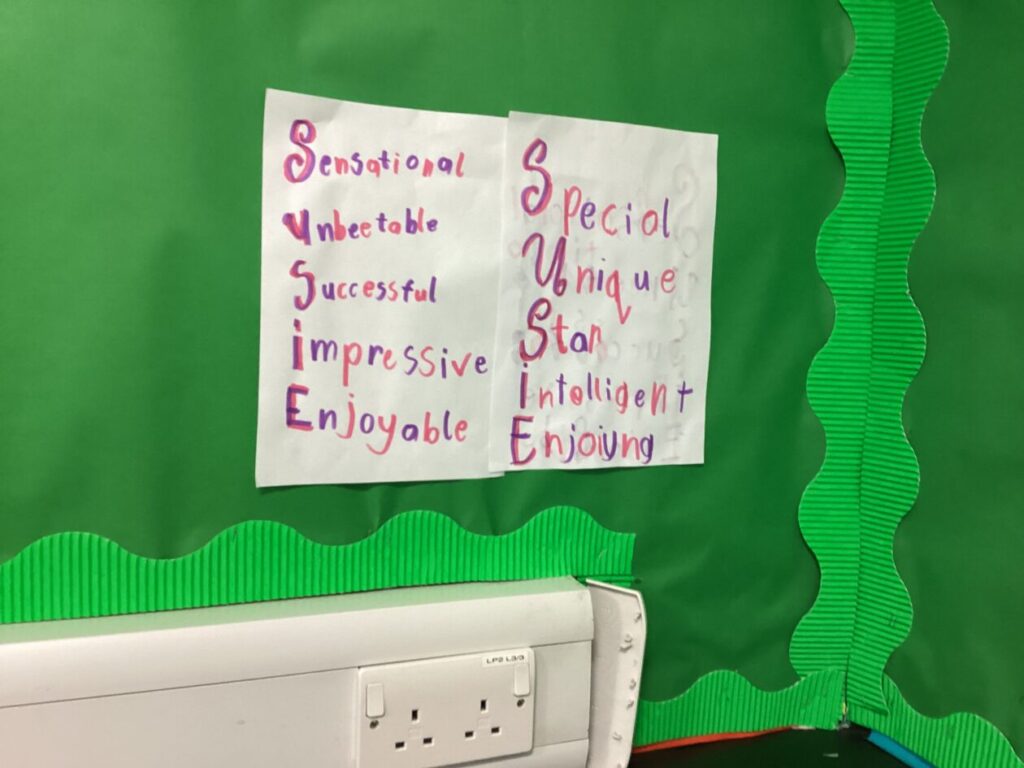 Sensational
unbeetable
Successful
impressive
Enjoyable
Special
Unique
Star
intelligent
Enjoiyng
LP2 L3/3